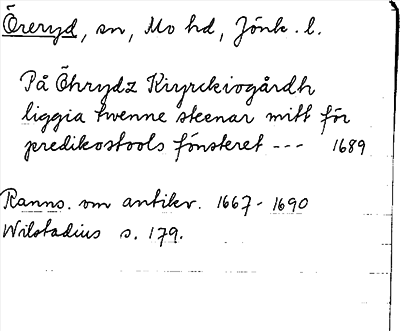 Öreryd, sn, Mo hd, Jönk. l.
På Öhrydz Kiyrckiogårdh
liggia twenne steenar mitt för
predikostools fönsteret --- 1689
Ranns. om antikv. 1667-1690
Wilstadius s. 179.